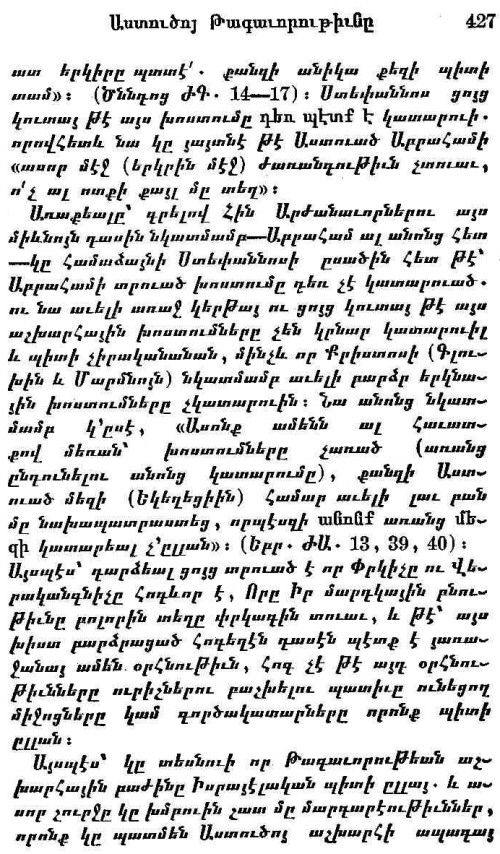 Աստուծոյ Թագաւորութիւնը 427
ատ երկիրը պտտէ՛. քանզի անիկա քեզի պիտի
տամ»։ (Ծննդոց ԺԳ. 14—17)։ Ստեփաննոս ցոյց
կուտայ թէ այս խոստումը դեռ պէտք է կատարուի.
որովհետև նա կը յայտնէ թէ Աստուած Աբրահամի
«ասոր մէջ (երկրին մէջ) ժառանգութիւն չտուաւ,
ո՛չ ալ ոտքի քայլ մը տեղ»։
Առաքեալը՝ գրելով Հին Արժանաւորներու այս
միևնոյն դասին նկատմամբ—Աբրահամ ալ անոնց հետ
—կը համաձայնի Ստեփաննոսի ըսածին հետ թէ՝
Աբրահամի տրուած խոստումը դեռ չէ կատարուած.
ու նա աւելի առաջ կերթայ ու ցոյց կուտայ թէ այս
աշխարհային խոստումները չեն կրնար կատարուիլ
և պիտի չիրականանան, մինչև որ Քրիստոսի (Գլու-
խին և Մարմնոյն) նկատմամբ աւելի բարձր երկնա-
յին խոստումները չկատարուին։ Նա անոնց նկատ-
մամբ կ՚ըսէ, «Ասոնք ամենն ալ հաւատ-
քով մեռան՝ խոստումները չառած (առանց
ընդունելու անոնց կատարումը), քանզի Աստ-
ուած մեզի (Եկեղեցիին) համար աւելի լաւ բան
մը նախապատրաստեց, որպէսզի անոնք առանց մե-
զի կատարեալ չ՚ըլլան»։ (Եբր. ԺԱ. 13, 39, 40)։
Այսպէս՝ դարձեալ ցոյց տրուած է որ Փրկիչը ու Վե-
րականգնիչը Հոգևոր է, Որը Իր մարդկային բնու-
թիւնը բոլորին տեղը փրկագին տուաւ, և թէ՝ այս
խիստ բարձրացած Հոգեղէն դասէն պէտք է յառա-
ջանայ ամեն օրհնութիւն, հոգ չէ թէ այդ օրհնու-
թիւնները ուրիչներու բաշխելու պատիւը ունեցող
միջոցները կամ գործակատարները որոնք պիտի
ըլլան։
Այսպէս՝ կը տեսնուի որ Թագաւորութեան աշ-
խարհային բաժինը Իսրայէլական պիտի ըլլայ. և ա-
սոր շուրջը կը խմբուին շատ մը մարգարէութիւններ,
որոնք կը պատմեն Աստուծոյ աշխարհի ապագայ